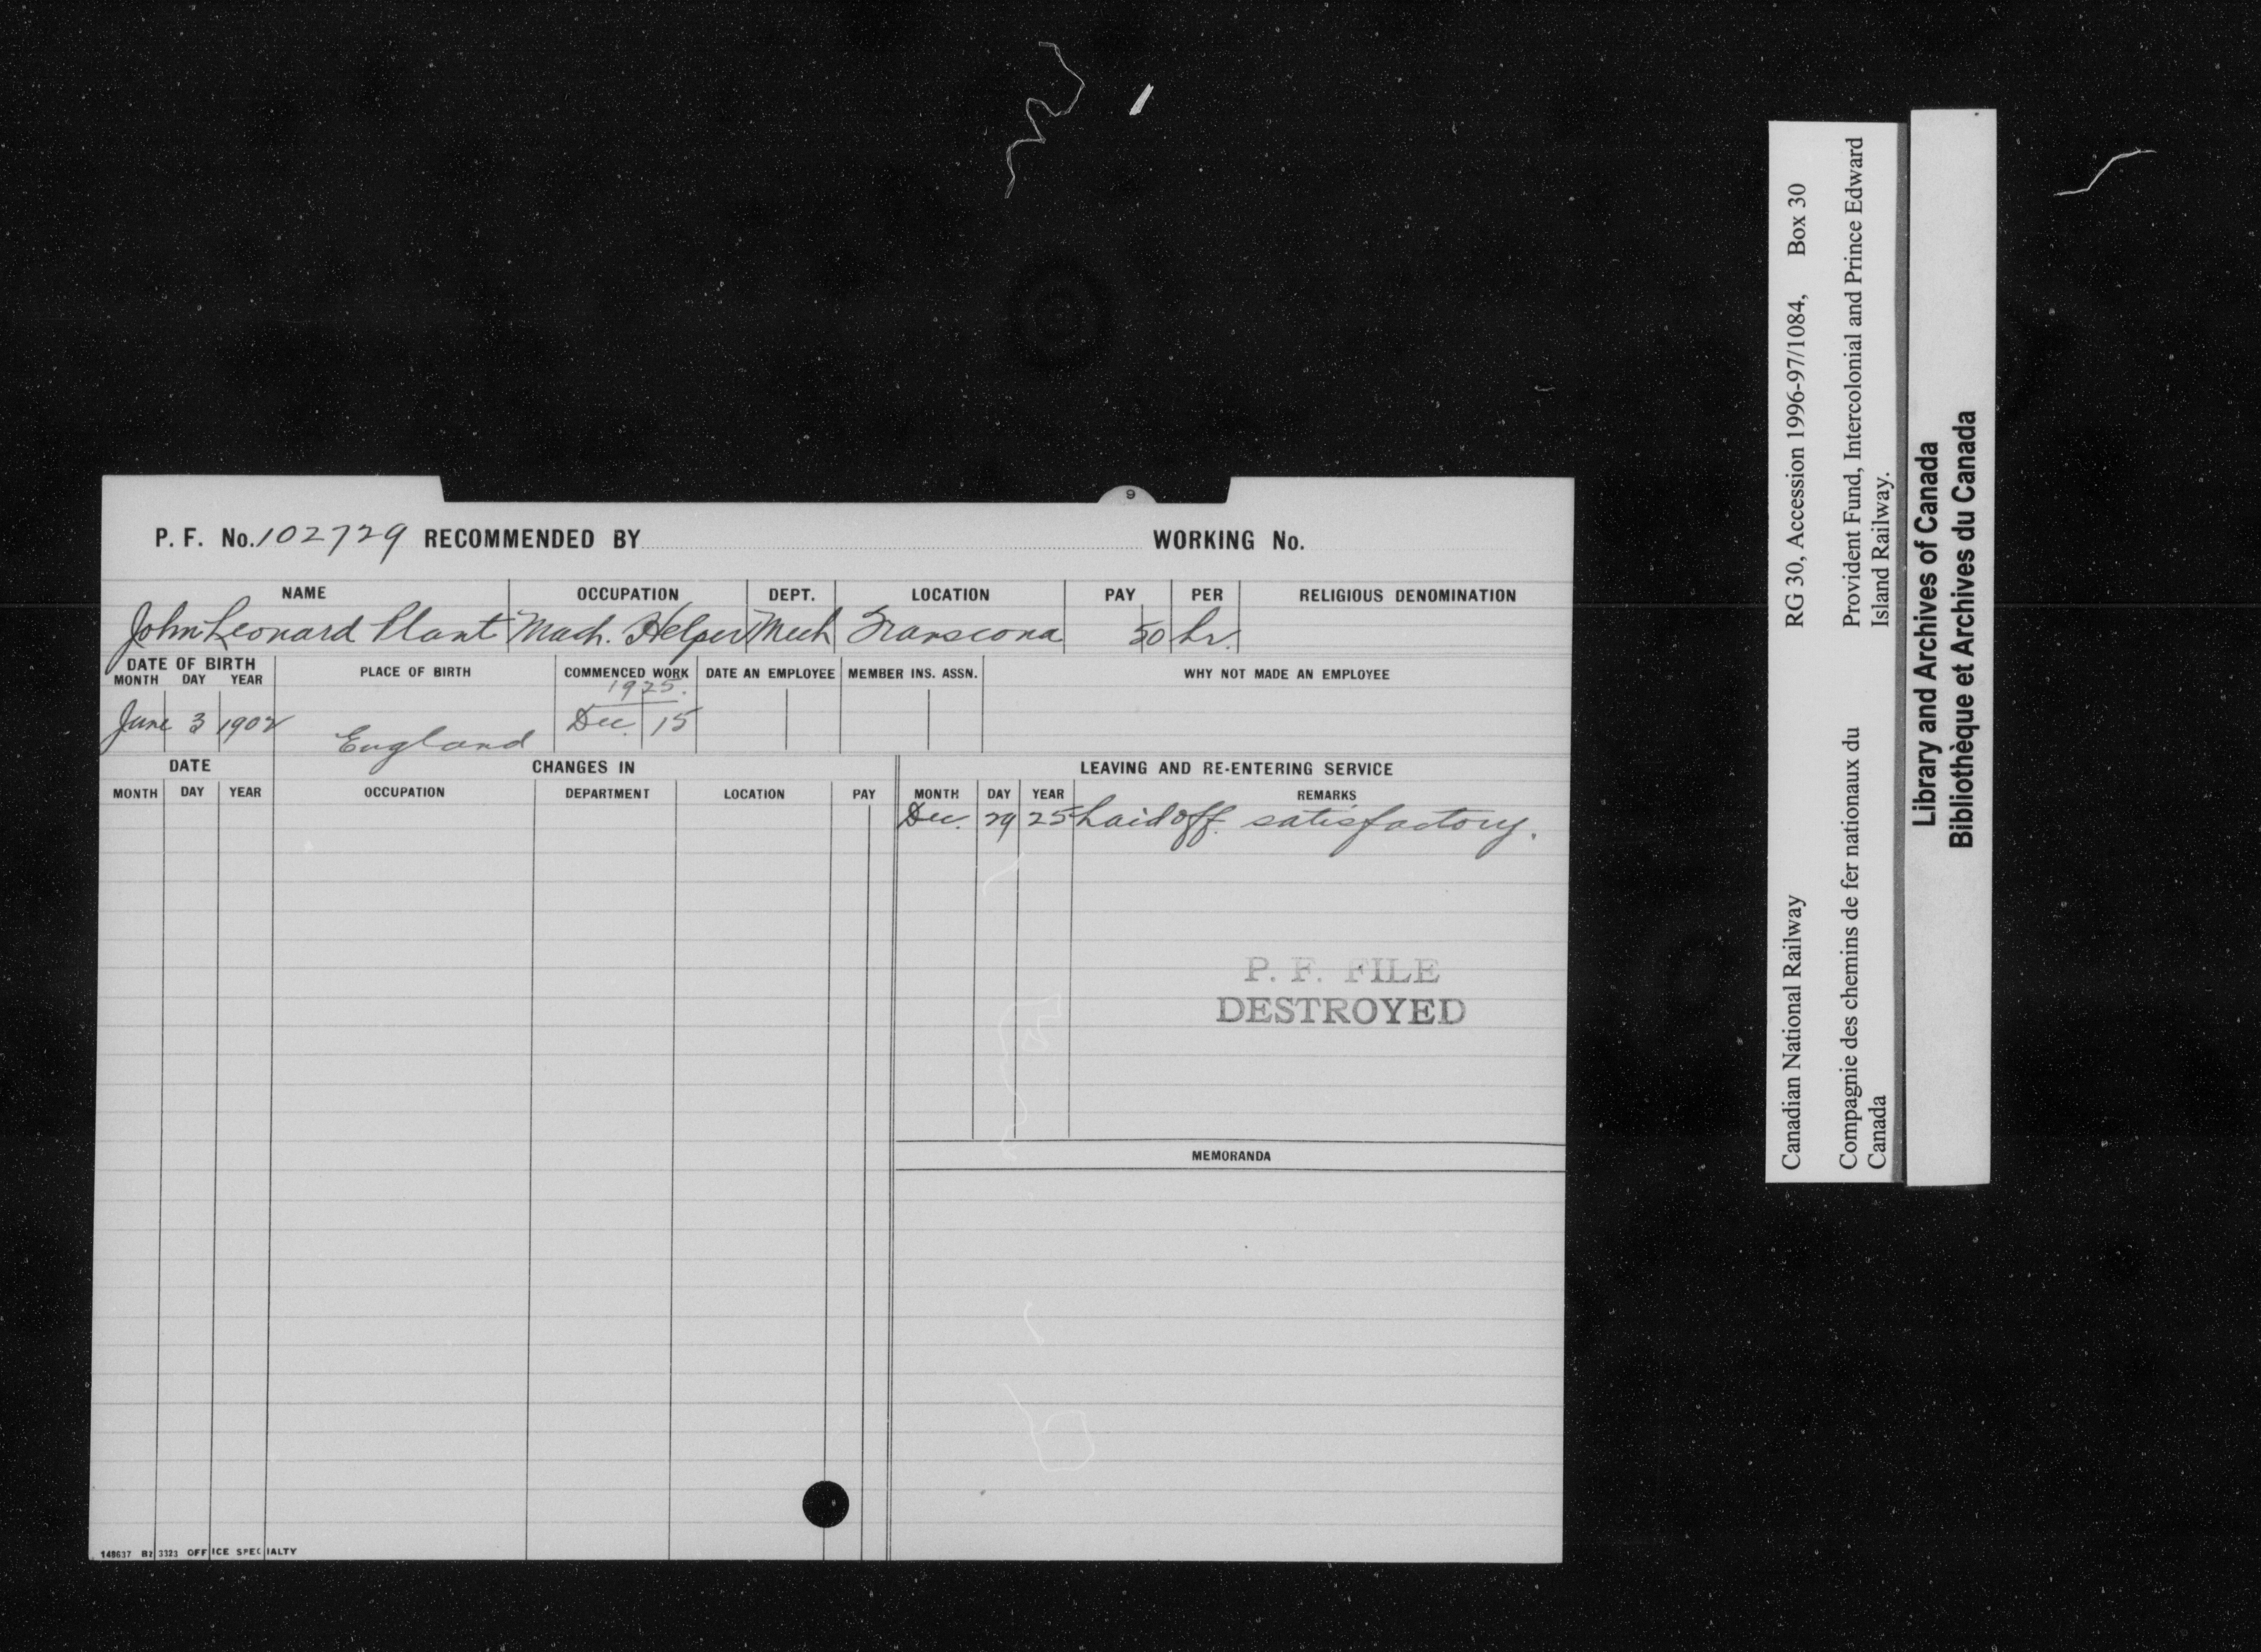 9
P. F. No. 102729 RECOMMENDED BY WORKING No.
NAME OCCUPATION DEPT. LOCATION PAY PER RELIGIOUS DENOMINATION
John Leonard Plant Mach. Helper Mech Transcona 50 hr.
DATE OF BIRTH PLACE OF BIRTH COMMENCED WORK DATE AN EMPLOYEE MEMBER INS. ASSN. WHY NOT MADE AN EMPLOYEE
MONTH DAY YEAR
1925.
June 3 1902 England Dec. 15
DATE CHANGES IN LEAVING AND RE-ENTERING SERVICE
MONTH DAY YEAR OCCUPATION DEPARTMENT LOCATION PAY MONTH DAY YEAR REMARKS
Dec. 29 25 Laid off. satisfactory.
P. F. FILE
DESTROYED
MEMORANDA
148637 B2 3323 OFFICE SPECIALTY
Canadian National Railway RG 30, Accession 1996-97/1084, Box 30
Compagnie des chemins de fer nationaux du Provident Fund, Intercolonial and Prince Edward
Canada Island Railway.
Library and Archives of Canada
Bibliothèque et Archives du Canada